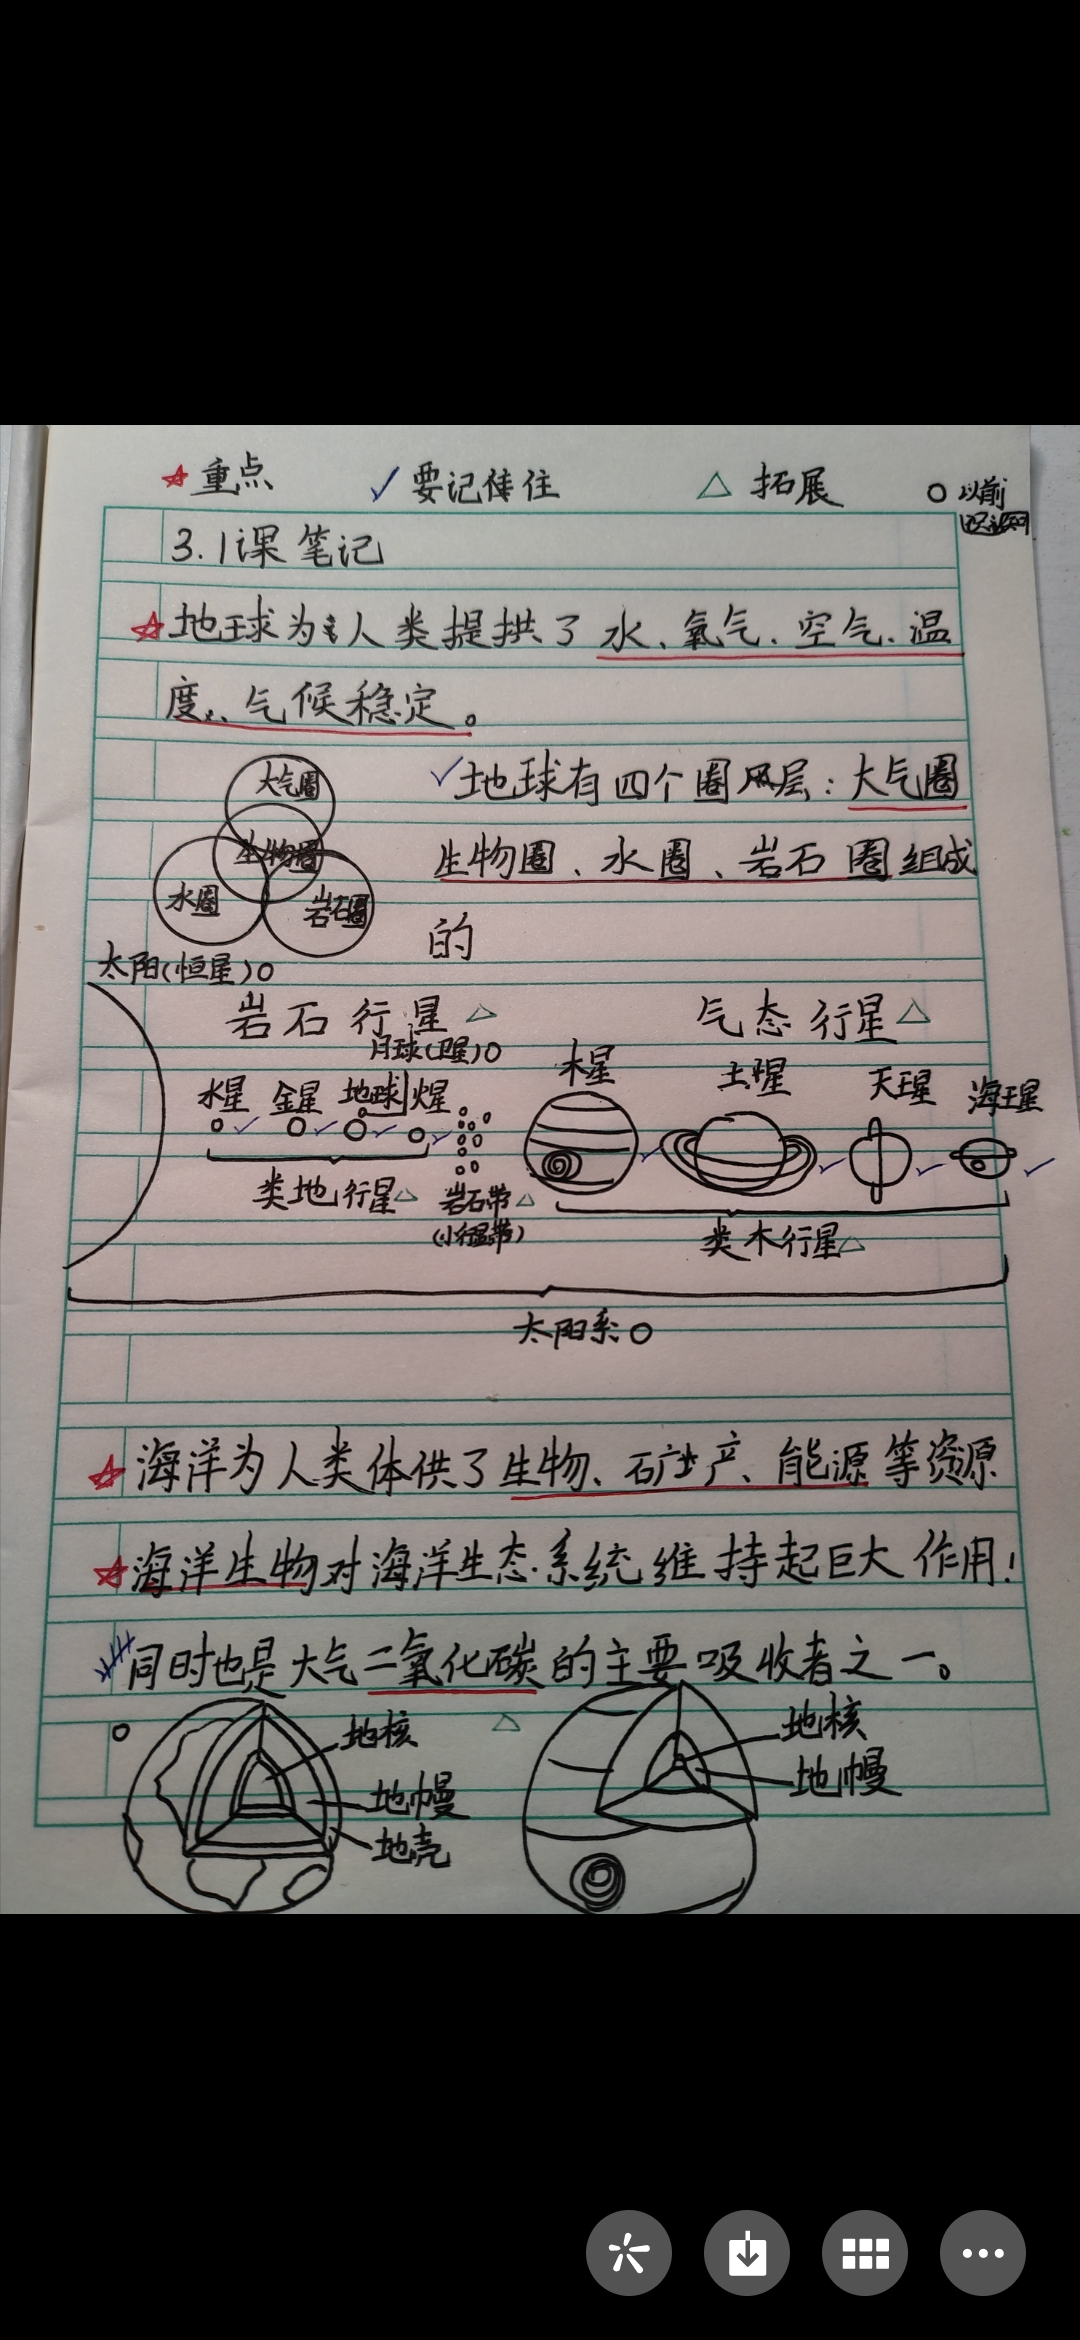 重点 要记住 拓展 以前
3.1课笔记
地球为人类提拱了水、氧气、空气、温
度、气候稳定。
大气圈
生物圈
水圈
岩石圈
地球有四个圈层:大气圈
生物圈、水圈、岩石圈组成
的
太阳(恒星)
岩石行星 气态行星
月球(卫星)
水星 金星 地球 火星 木星 土星 天王星 海王星
类地行星 岩石带
(小行星带)
类木行星
太阳系
海洋为人类体供了生物、矿产、能源等资源
海洋生物对海洋生态系统维持起巨大作用!
同时也是大气二氧化碳的主要吸收者之一。
地核
地幔
地壳
地核
地幔